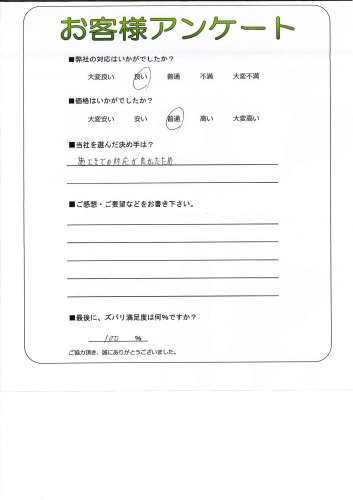 お客様アンケート
■弊社の対応はいかがでしたか?
大変良い 良い 普通 不満 大変不満
■価格はいかがでしたか?
大変安い 安い 普通 高い 大変高い
■当社を選んだ決め手は?
施工までの対応が良かったため
■ご感想・ご要望などをお書き下さい。
■最後に、ズバリ満足度は何%ですか?
100 %
ご協力頂き、誠にありがとうございました。